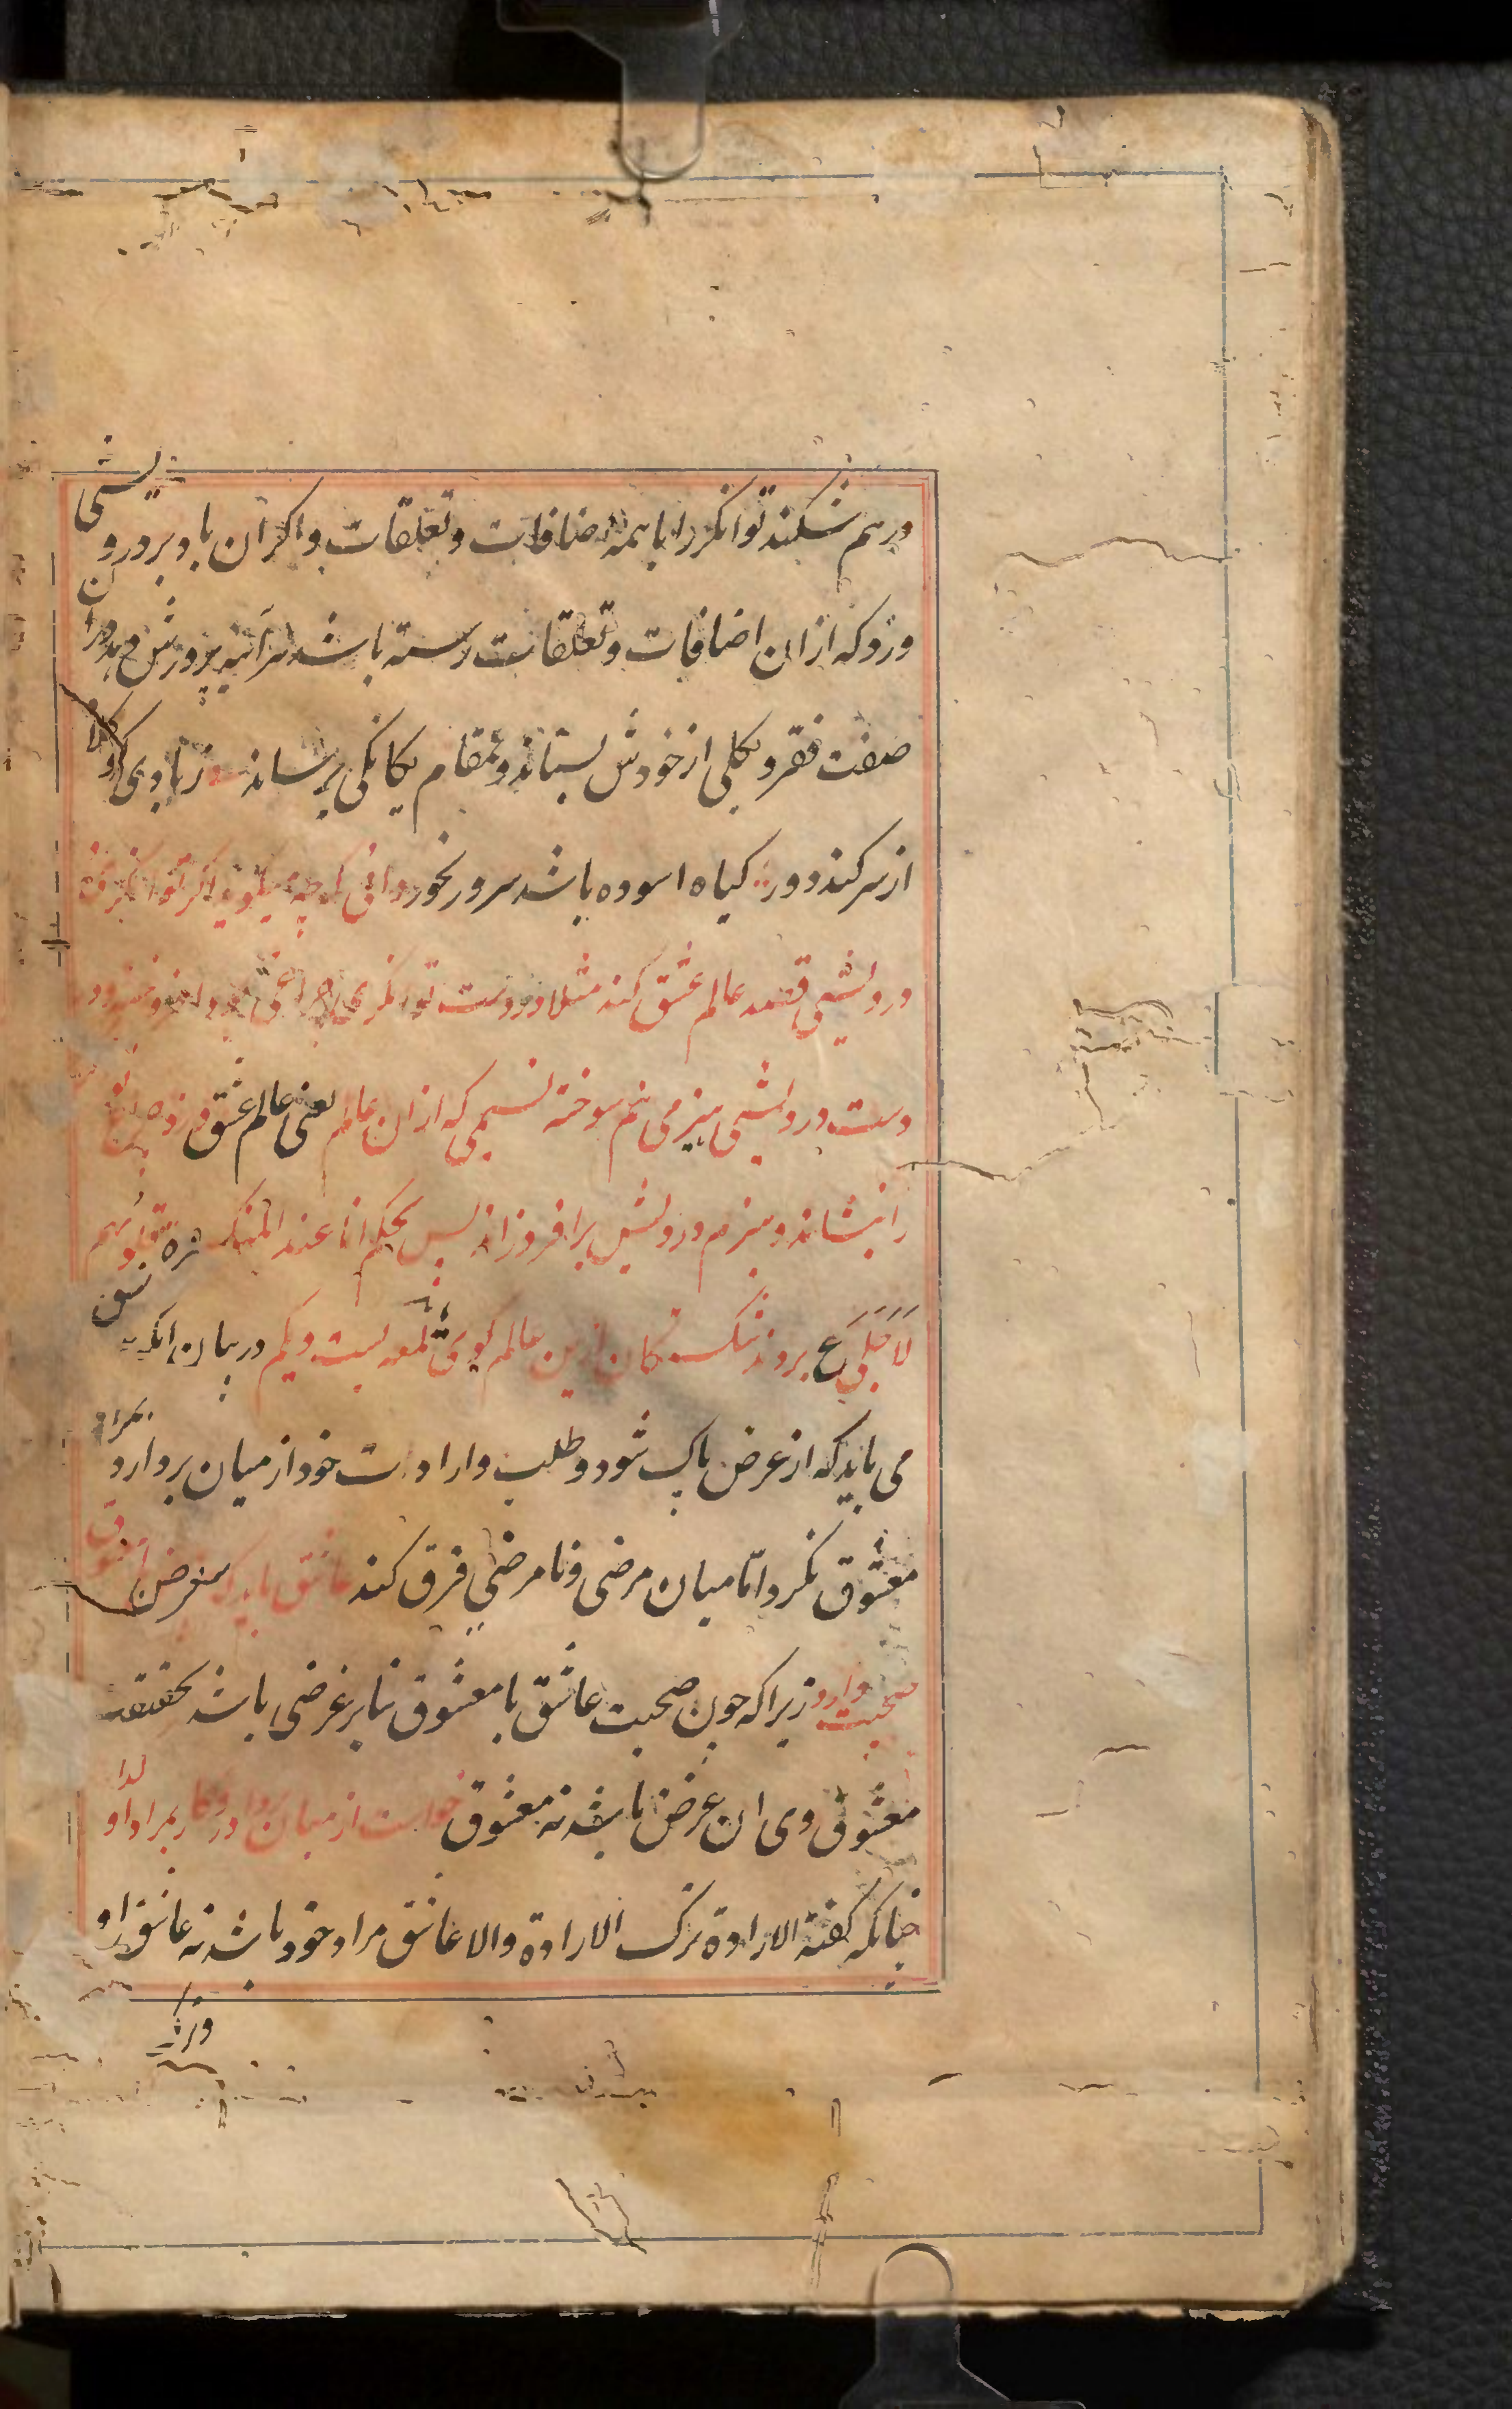 درهم شکند توانکر را با همه اضافات و تعلقات و اکر ان باد بر درویشی
وزد که از ان اضافات و تعلقات رسته باشد هر آینه پرورش دهد در ان
صفت فقر و بکلی از خودش بستاند و بمقام یکانکی برساند بادی که
از سر کند دور کیاه اسوده باشد سرور نخورد دانی که چه میکوید اکر توانکری
درویشی قصد عالم عشق کند مثلا در دست توانکری چراغی بود افروخته و در
دست درویشی هیزمی نیم سوخته نسیمی که از ان عالم یعنی عالم عشق وزد چراغ توانکر
را بنشاند و هیزم درویش برافروزاند پس بحکم انا عند المنکسرة قلوبهم
لاجلی ع بروند شکستکان ازین عالم کوی لمعه بیست و یکم در بیان انکه عاشق
می باید که از غرض پاک شود و طلب و ارادت خود از میان بردارد بمراد
معشوق نکرد اما میان مرضی و نامرضی فرق کند عاشق باید که بیغرض با معشوق
صحبت دارد زیرا که چون صحبت عاشق با معشوق بنابر غرضی باشد بحقیقت
معشوق وی ان غرض باشد نه معشوق خواست از میان بردارد و کار بمراد او
چنانکه کفته الارادة ترک الارادة والا عاشق مراد خود باشد نه عاشق او